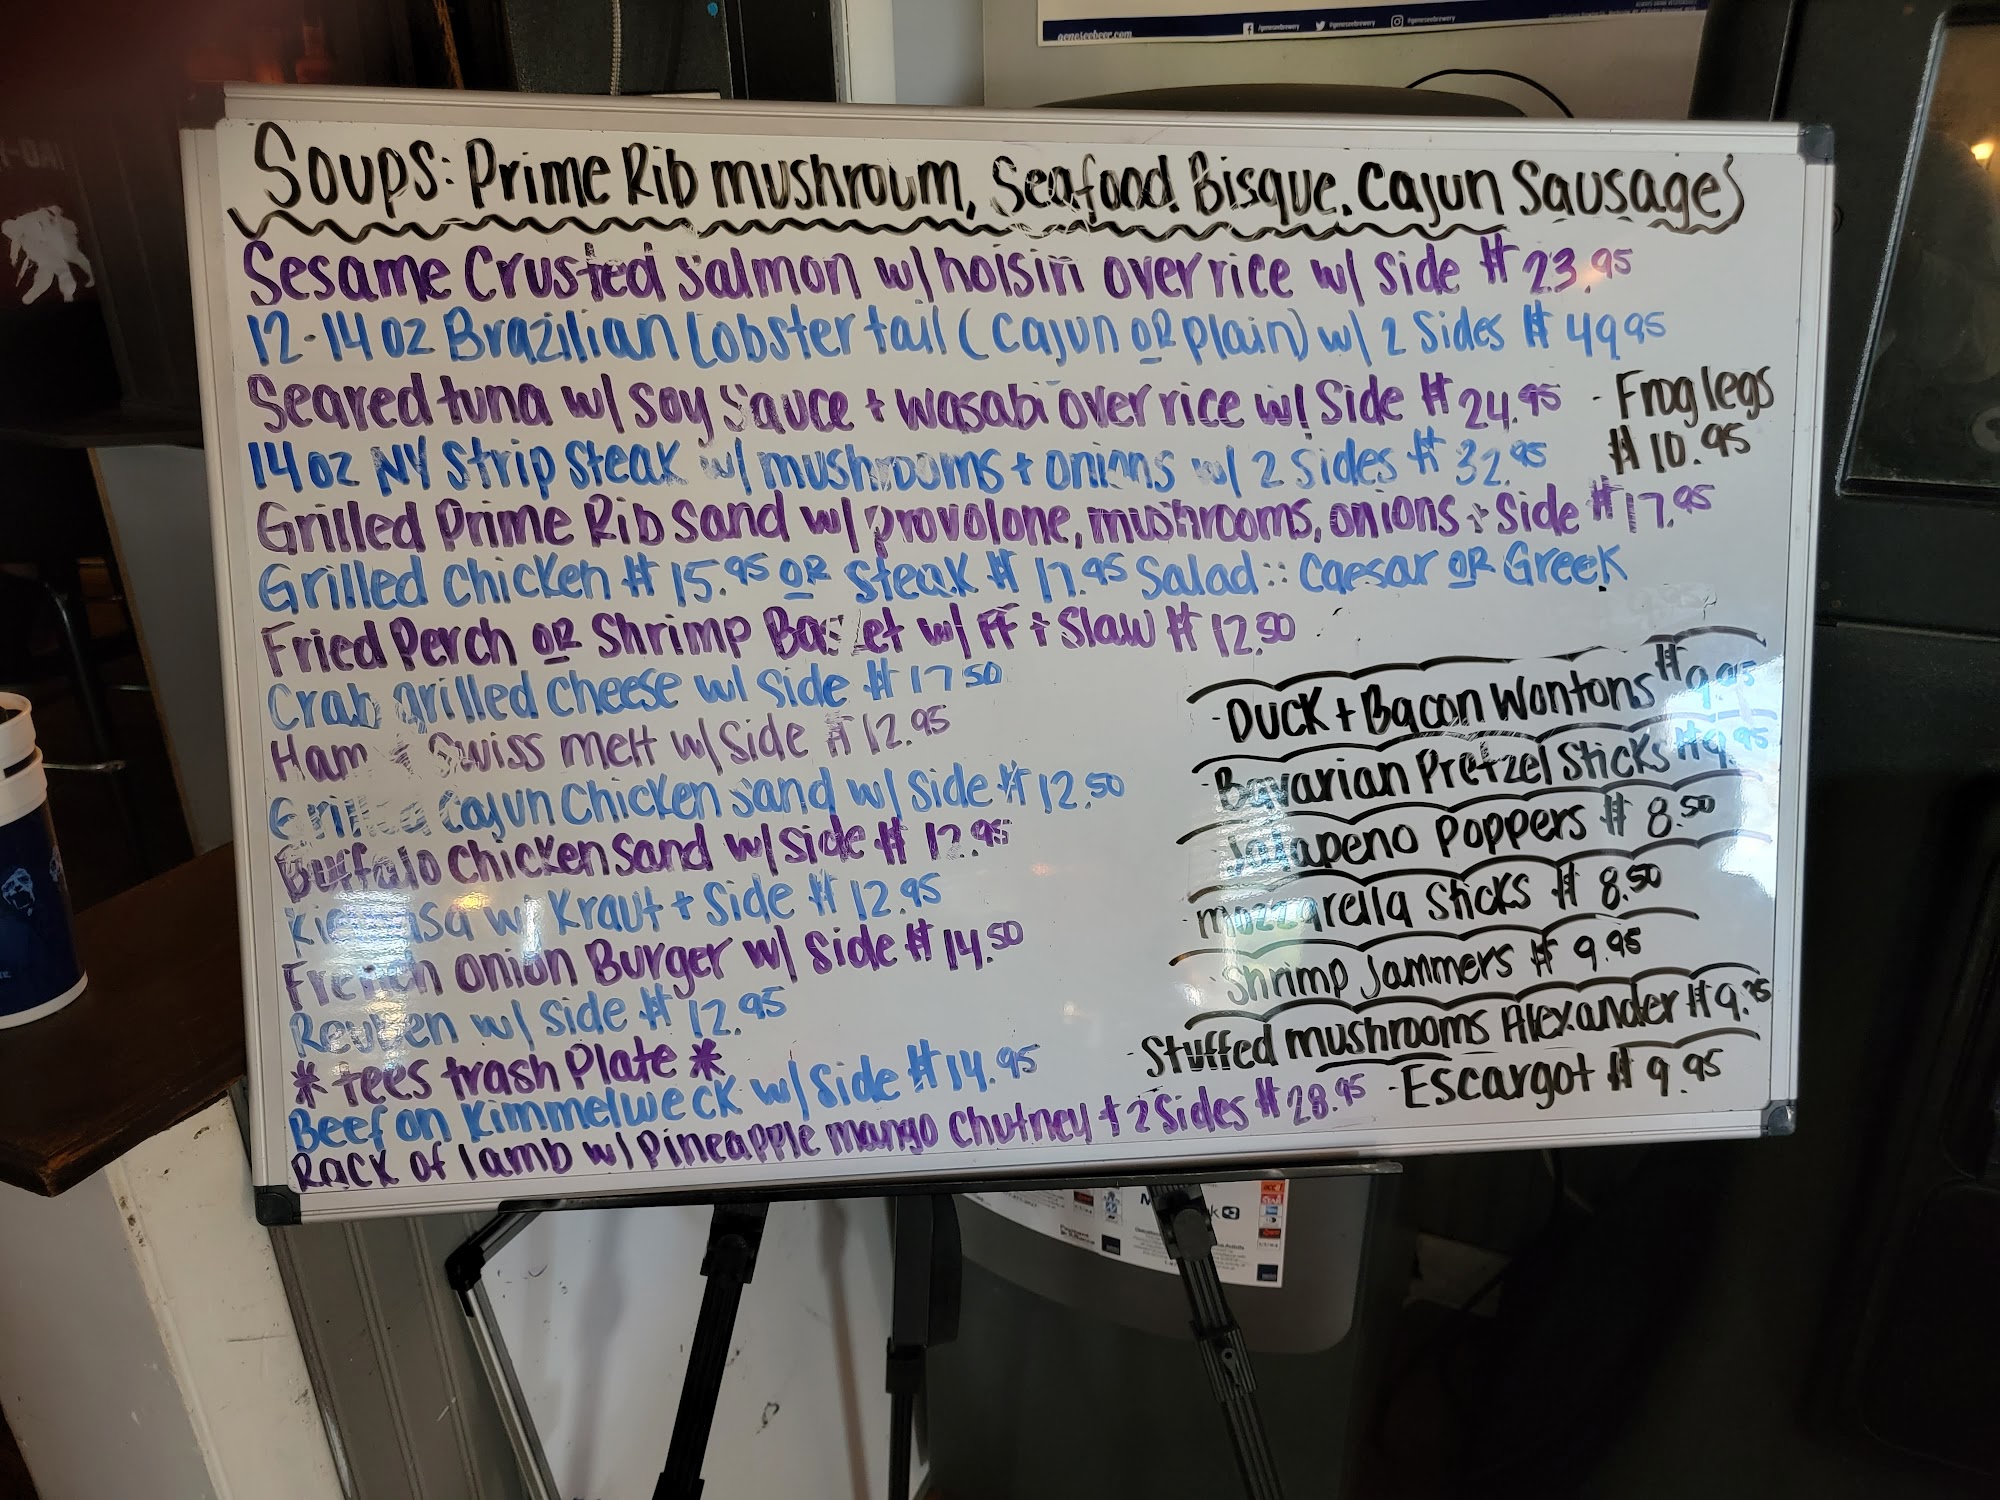 geneseebeer.com /geneseebrewery /geneseebrewery /geneseebrewery
Soups: Prime Rib mushroum, Seafood Bisque, Cajun Sausage
Sesame Crusted Salmon w/ hoisin over rice w/ side # 23.95
12-14 oz Brazilian Lobster tail (Cajun OR plain) w/ 2 Sides # 49.95
Seared tuna w/ soy sauce + wasabi over rice w/ Side # 24.95
- Frog legs
# 10.95
14 oz NY Strip Steak w/ mushrooms + onions w/ 2 sides # 32.95
Grilled Prime Rib sand w/ provolone, mushrooms, onions + side # 17.95
Grilled chicken # 15.95 OR steak # 17.95 Salad:: Caesar OR Greek
Fried Perch OR Shrimp Basket w/ FF + Slaw # 12.50
Crab grilled cheese w/ side # 17.50
Ham + Swiss melt w/ side # 12.95
Grilled Cajun Chicken sand w/ side # 12.50
Buffalo chicken sand w/ side # 12.95
Kielbasa w/ Kraut + side # 12.95
French onion Burger w/ side # 14.50
Reuben w/ side # 12.95
* tees trash Plate *
Beef on Kimmelweck w/ side # 14.95
Rack of lamb w/ Pineapple mango chutney + 2 sides # 28.95
- Duck + Bacon Wontons # 9.95
- Bavarian Pretzel Sticks # 9.95
- Jalapeno Poppers # 8.50
- mozzarella Sticks # 8.50
- Shrimp Jammers # 9.95
- Stuffed mushrooms Alexander # 9.95
- Escargot # 9.95